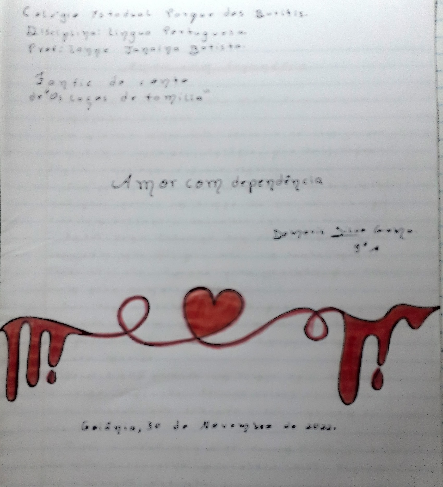 Colégio Estadual Parque dos Buritis.
Disciplina: Língua Portuguesa.
Prof: Janaina Batista.
Fanfic do conto
de "Os Laços de família"
Amor com dependência
Silva Gama
3° A
Goiânia, 30 de Novembro de 2022.